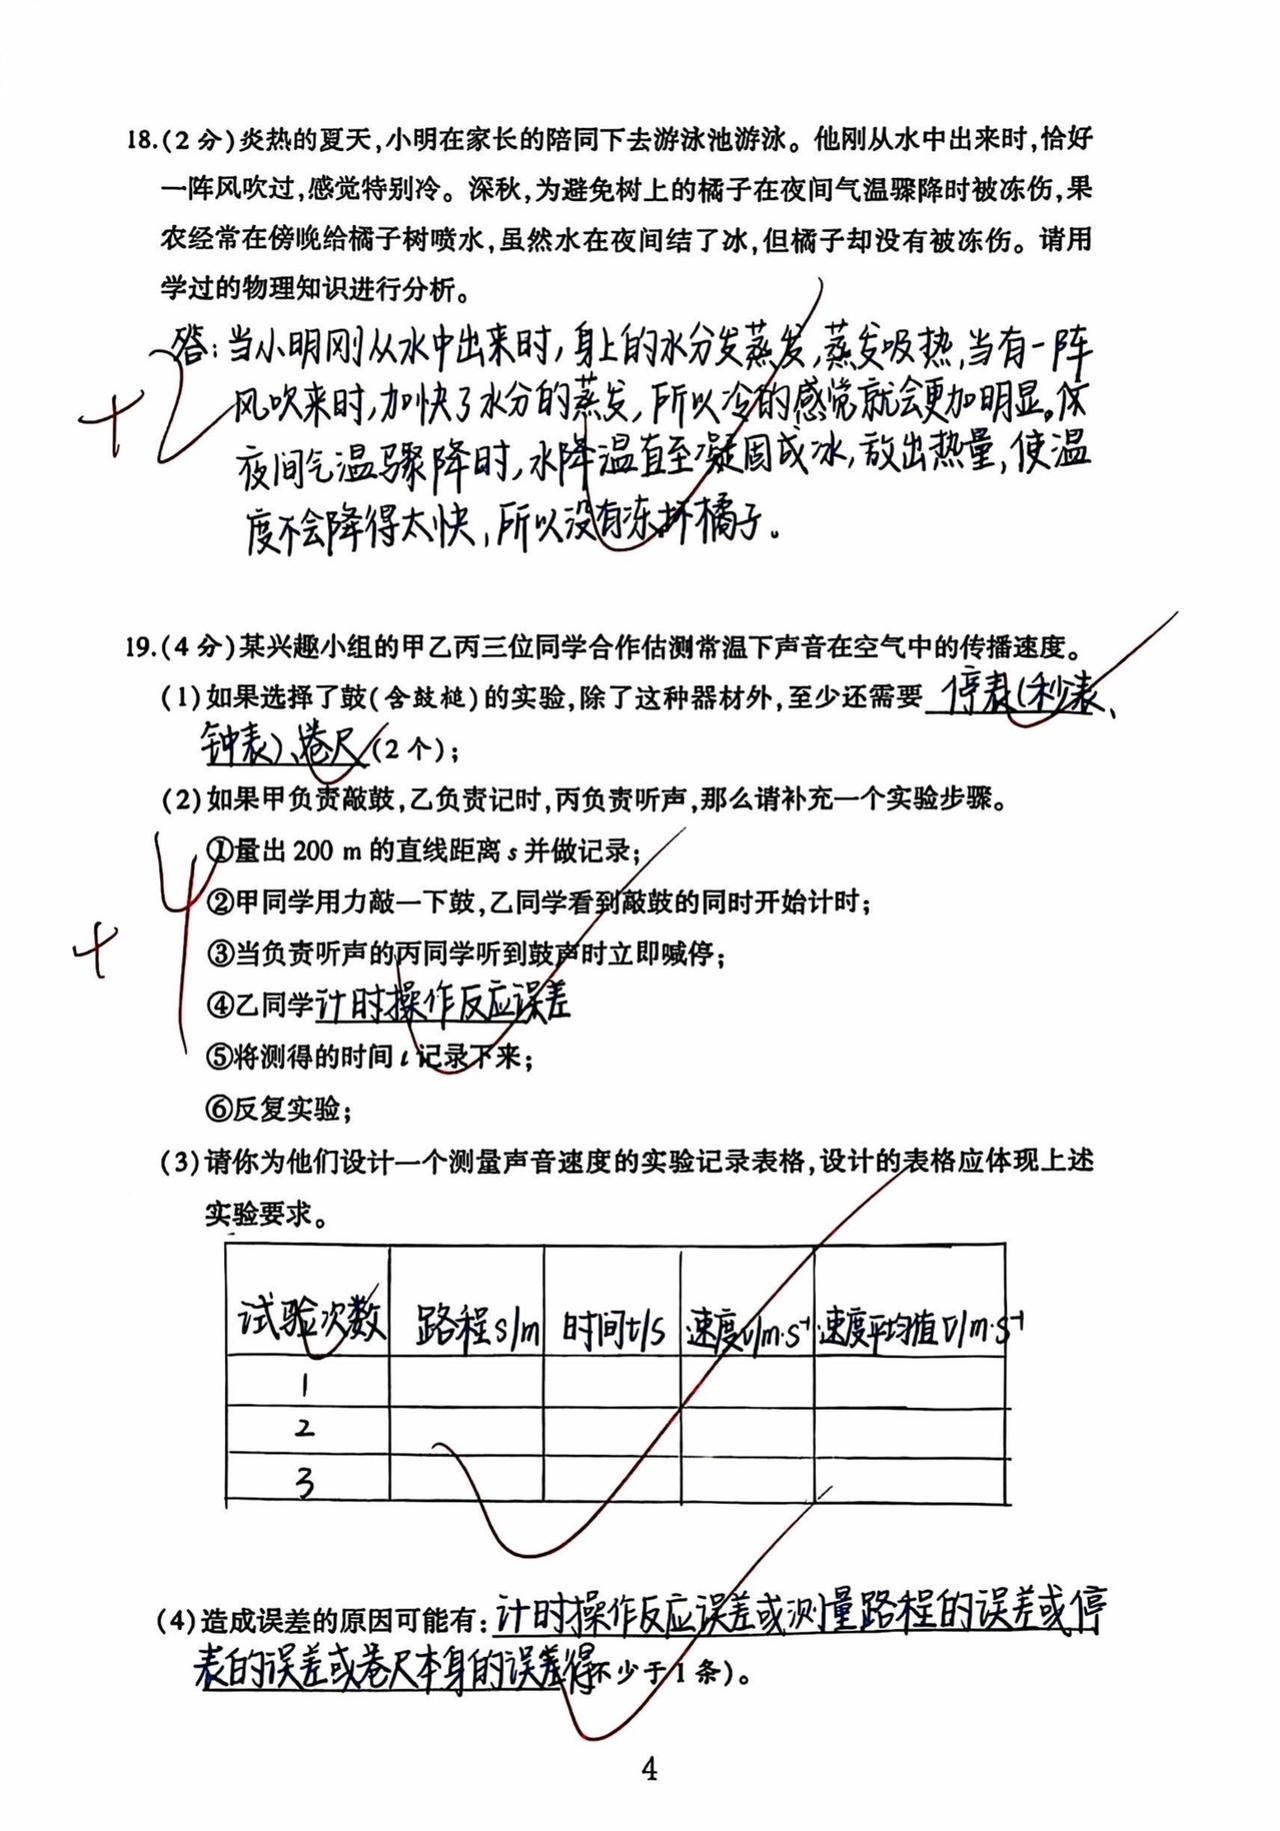 18.(2分)炎热的夏天,小明在家长的陪同下去游泳池游泳。他刚从水中出来时,恰好
一阵风吹过,感觉特别冷。深秋,为避免树上的橘子在夜间气温骤降时被冻伤,果
农经常在傍晚给橘子树喷水,虽然水在夜间结了冰,但橘子却没有被冻伤。请用
学过的物理知识进行分析。
答:当小明刚从水中出来时,身上的水分发蒸发,蒸发吸热,当有一阵
+2 风吹来时,加快了水分的蒸发,所以冷的感觉就会更加明显。
夜间气温骤降时,水降温直至凝固成冰,放出热量,使温
度不会降得太快,所以没有冻坏橘子。
19.(4分)某兴趣小组的甲乙丙三位同学合作估测常温下声音在空气中的传播速度。
(1)如果选择了鼓(含鼓槌)的实验,除了这种器材外,至少还需要 停表(秒表、
钟表)、卷尺(2个);
(2)如果甲负责敲鼓,乙负责记时,丙负责听声,那么请补充一个实验步骤。
①量出200 m的直线距离s并做记录;
②甲同学用力敲一下鼓,乙同学看到敲鼓的同时开始计时;
+4 ③当负责听声的丙同学听到鼓声时立即喊停;
④乙同学计时操作反应误差
⑤将测得的时间t记录下来;
⑥反复实验;
(3)请你为他们设计一个测量声音速度的实验记录表格,设计的表格应体现上述
实验要求。
试验次数 路程s/m 时间t/s 速度v/m·s⁻¹ 速度平均值v/m·s⁻¹
1
2
3
(4)造成误差的原因可能有:计时操作反应误差或测量路程的误差或停
表的误差或卷尺本身的误差得不少于1条)。
4